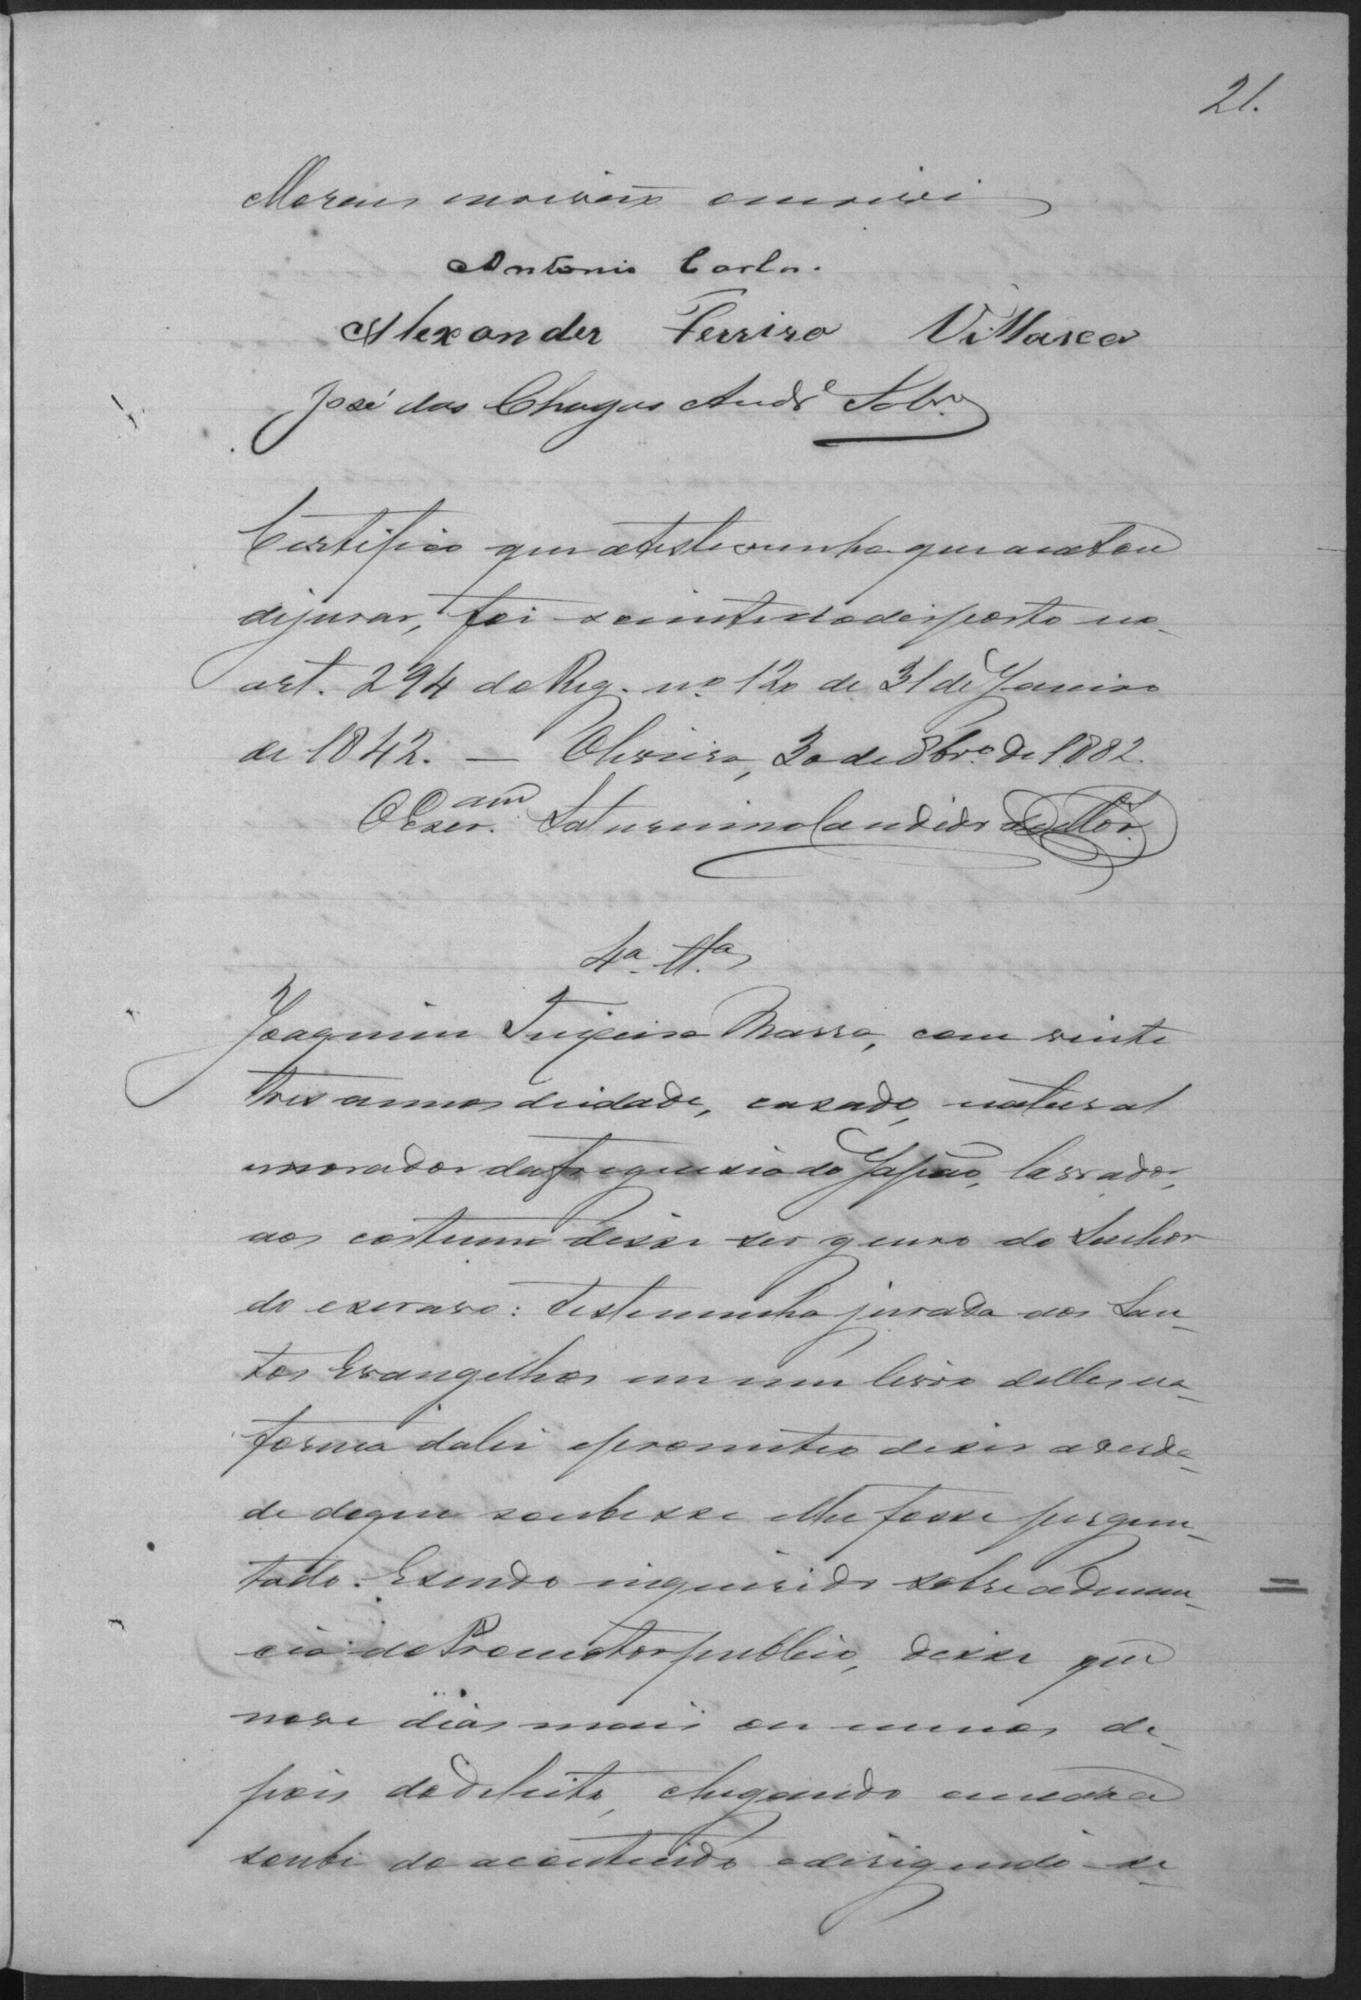 21.
Moraes escrivão o escrevi
Antonio Carlos.
Alexander Ferrira Villasca
José das Chagas Andr.e Sobr.o
Certifico que a testemunha que acaba
de jurar, foi scientedo do disposto no
art. 294 do Reg. nº 120 de 31 de Janeiro
de 1842. — Oliveira, 30 de 8br.o de 1882.
O Escr.am Saturnino Candido de Mor.
4a. Tt.a
Joaquim Teixeira Marra, com vinte
tres annos de idade, casado, natural
e morador da freguezia do Japão, lavrador,
aos costumes disse ser genro do Senhor
do escravo: testemunha jurada aos San-
tos Evangelhos em um livro delles na
forma da lei e prometteo dizer a verda-
de do que soubesse e lhe fosse pergun-
tado. E sendo inquirido sobre a denun-
cia do Promotor publico, disse que
nove dias mais ou menos de-
pois do delicto, chegando em
soube do acontecido e dirigindo-se